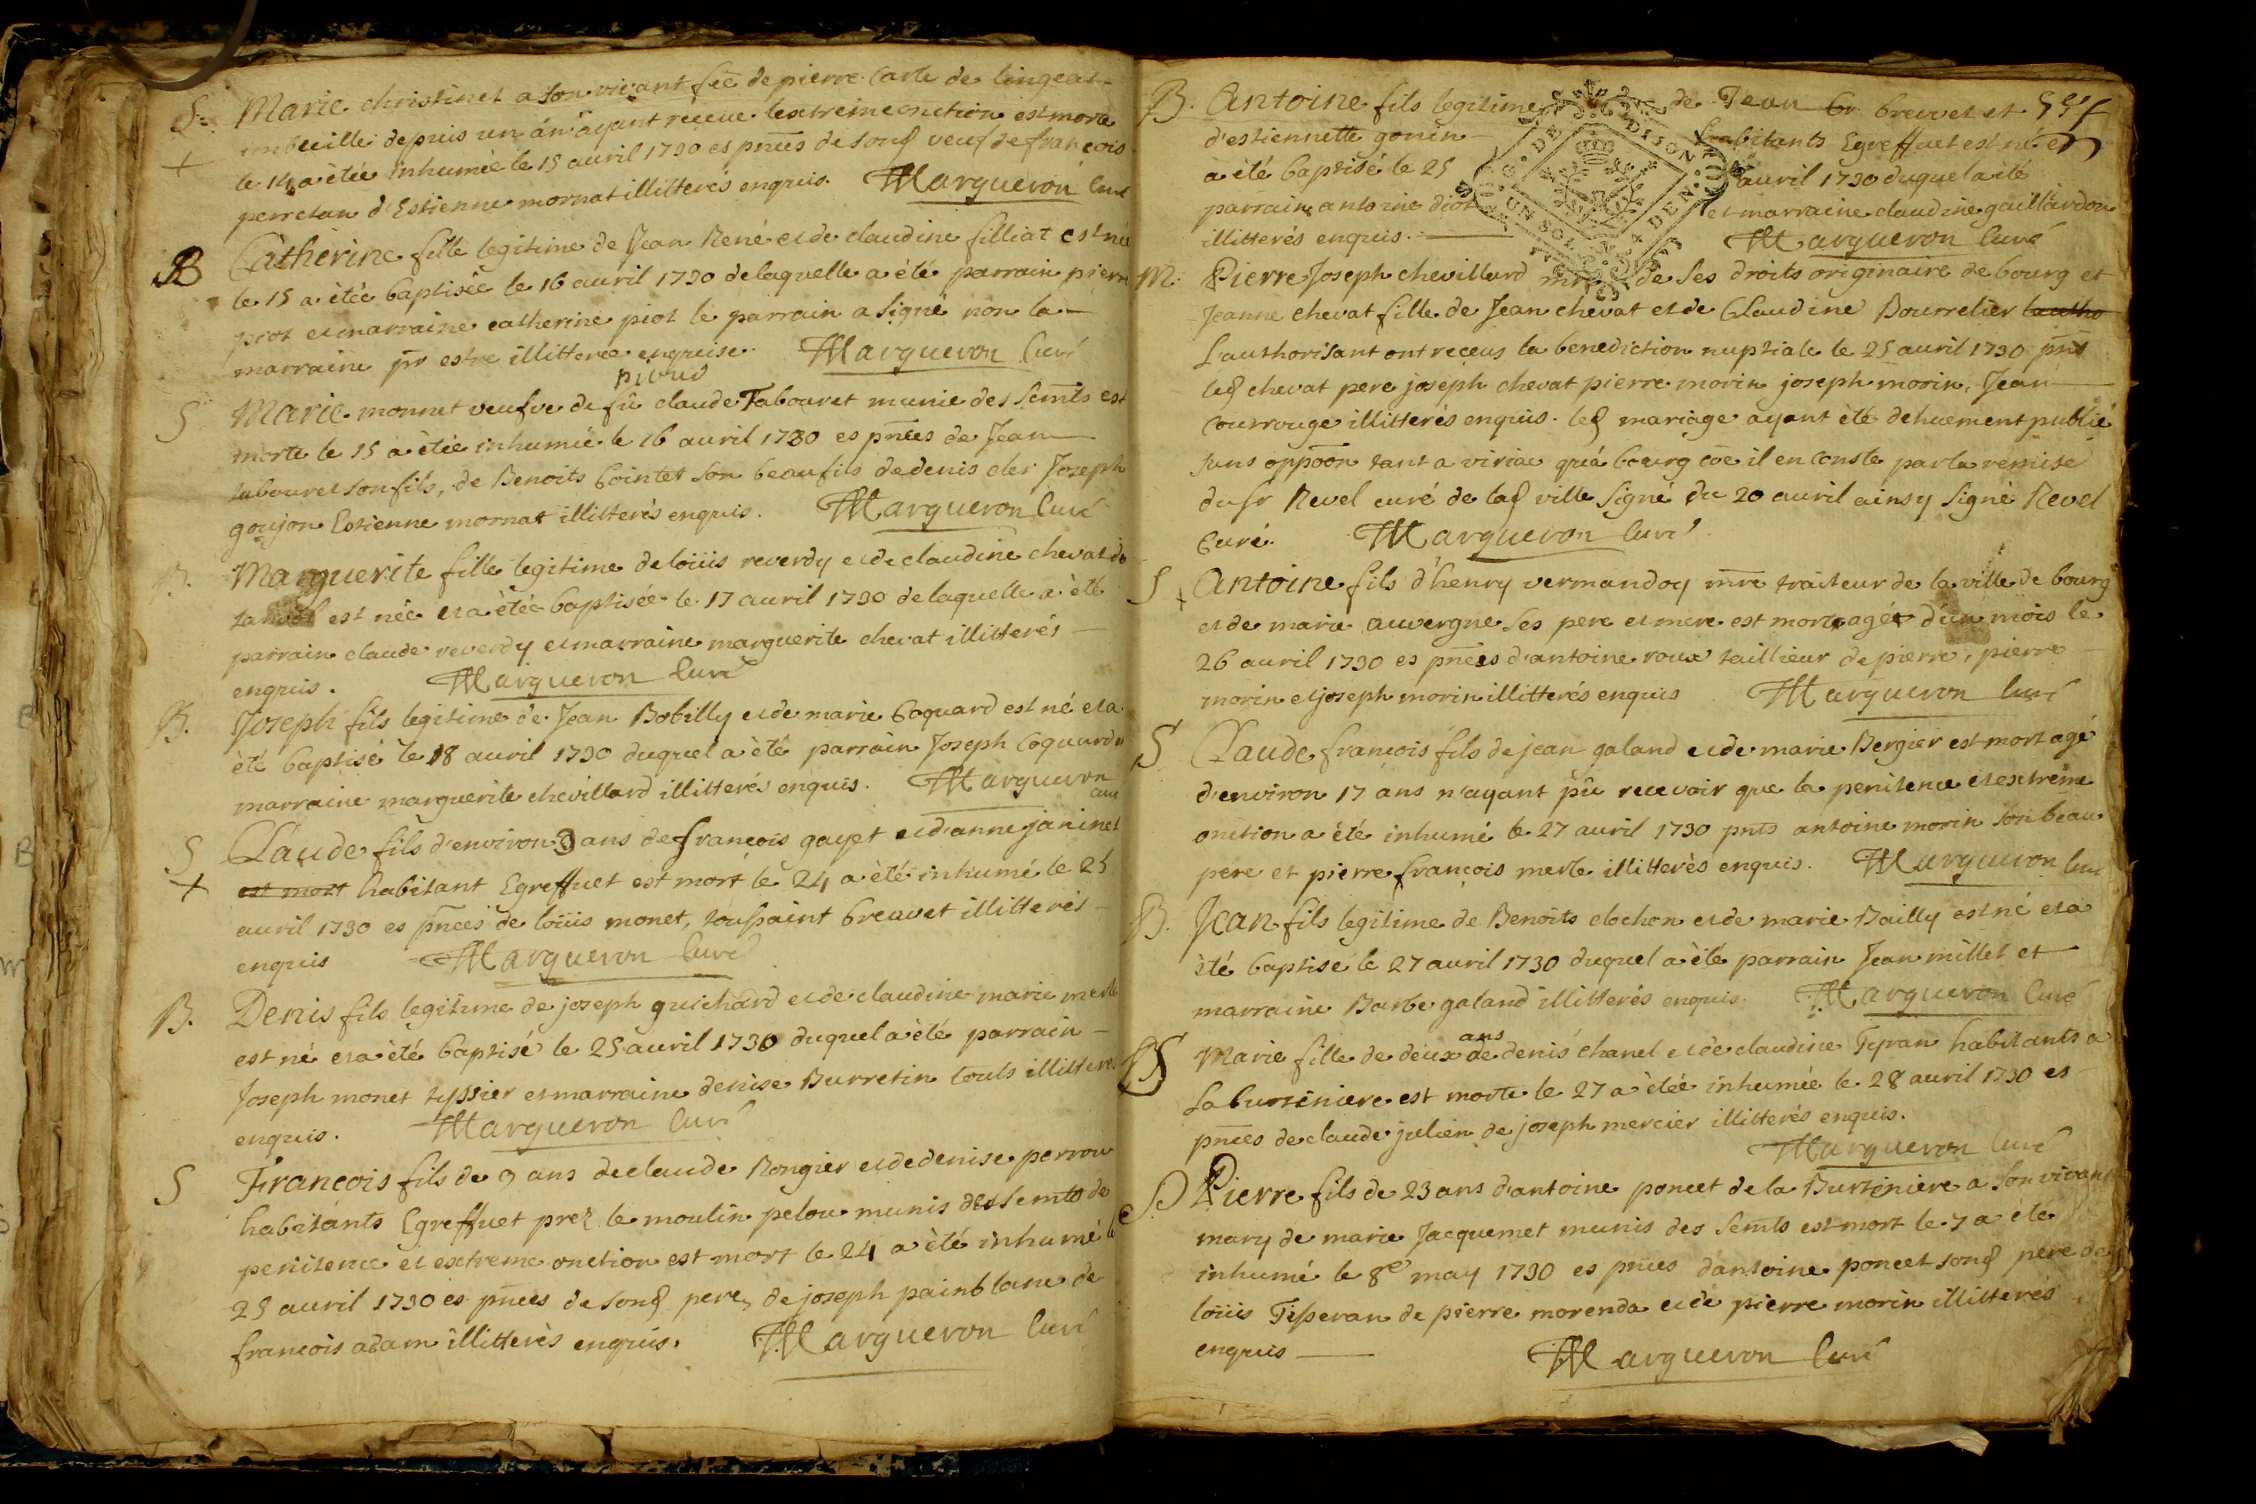 S. Marie christinet a son vivant fẽe de pierre Carle de lingeat
imbecille depuis un án ayant reçeue lextreme onction est morte
+ le 14 a étée inhumée le 15 avril 1730 es pñces de sond veuf de francois
perretan d'Estienne mornat illitterés enquis. Margueron Curé
B Catherine fille legitime de Jean René et de claudine filliat est née
le 15 a étée baptisée le 16 avril 1730 de laquelle a été parrain pierre
piot et marraine catherine piot le parrain a signé non la
marraine pr estre illitteree enquise. Margueron Curé
S Marie monnet veufve de fû claude Tabouret munie des semts est
morte le 15 a étée inhumée le 16 avril 1730 es pñces de Jean
tabouret son fils, de Benoits Cointet son beaufils de denis cler Joseph
goujon Estienne mornat illitterés enquis. Margueron Curé
B. Marguerite fille legitime de loüis reverdy et de claudine chevat
est née et a étée baptisée le 17 avril 1730 de laquelle a été
parrain claude reverdy et marraine marguerite chevat illitterés
enquis. Margueron Curé
B. Joseph fils legitime de Jean Bobilly et de marie Coquard est né et a
été baptisé le 18 avril 1730 duquel a été parrain Joseph Coquard et
marraine marguerite chevillard illitterés enquis. Margueron
curé
S Claude fils d'environ 3 ans de françois gayet et d'anne janinet
+ est mort habitant Egreffuet est mort le 24 a été inhumé le 25
avril 1730 es pñces de loüis monet, toussaint breuvet illitterés
enquis Margueron Curé
B. Denis fils legitime de joseph guichard et de claudine marie merle
est né et a été baptisé le 25 avril 1730 duquel a été parrain
Joseph monet tyssier et marraine denise Burretin touts illitterés
enquis. Margueron Curé
S François fils de 9 ans de claude Rongier et de denise perrou
habitants Egreffuet prez le moulin pelou munis des semts de
penitence et extreme onction est mort le 24 a été inhumé le
25 avril 1730 es pñces de sond pere, de joseph painblanc de
francois adam illitterés enquis. Margueron Curé
B. Antoine fils legitime de Jean br breuvet et
d'estiennette gonin habitants Egreffuet est né et
a été baptisé le 25 avril 1730 duquel a été
parrain antoine diot et marraine claudine gaillardon
illitterés enquis. Margueron Curé
G. DE DIJON
UN SOL 4 DEN.
M. Pierre Joseph chevillard mre de ses droits originaire de bourg et
Jeanne chevat fille de Jean chevat et de Claudine Bourrelier lautho
L'authorisant ont reçeus la benediction nuptiale le 25 avril 1730 pñs
led chevat pere joseph chevat pierre morin joseph morin, Jean
Courrouge illitterés enquis. led mariage ayant été dehuement publié
sans oppoõn tant a viriac qu'á bourg cõe il en conste par la remise
du sr Revel curé de lad ville signé du 20 avril ainsy signé Revel
Curé. Margueron Curé
S + Antoine fils d'henry vermandoy mre traiteur de la ville de bourg
et de marie auvergne ses pere et mere est mort agés d'un mois le
26 avril 1730 es pñces d'antoine roux taillieur de pierre, pierre
morin et joseph morin illitterés enquis Margueron Curé
S Claude françois fils de jean galand et de marie Bergier est mort agé
d'environ 17 ans n'ayant pû recevoir que la penitence et extrême
onction a été inhumé le 27 avril 1730 pnts antoine morin son beau
pere et pierre françois merle illitterés enquis. Margueron Curé
B. Jean fils legitime de Benoits clochon et de marie Bailly est né et a
été baptisé le 27 avril 1730 duquel a été parrain Jean millet et
marraine Barbe galand illitterés enquis. Margueron Curé
S Marie fille de deux ans de denis chanel et de claudine Tyran habitants a
La burtiniere est morte le 27 a étée inhumée le 28 avril 1730 es
pñces de claude julien de joseph mercier illitterés enquis.
Margueron Curé
S Pierre fils de 23 ans d'antoine poncet de la Burtiniere a son vivant
mary de marie Jacquemet munis des semts est mort le 7 a été
inhumé le 8e may 1730 es pñces d'antoine poncet sond pere de
loüis Tisseran de pierre morenda et de pierre morin illitterés
enquis Margueron Curé